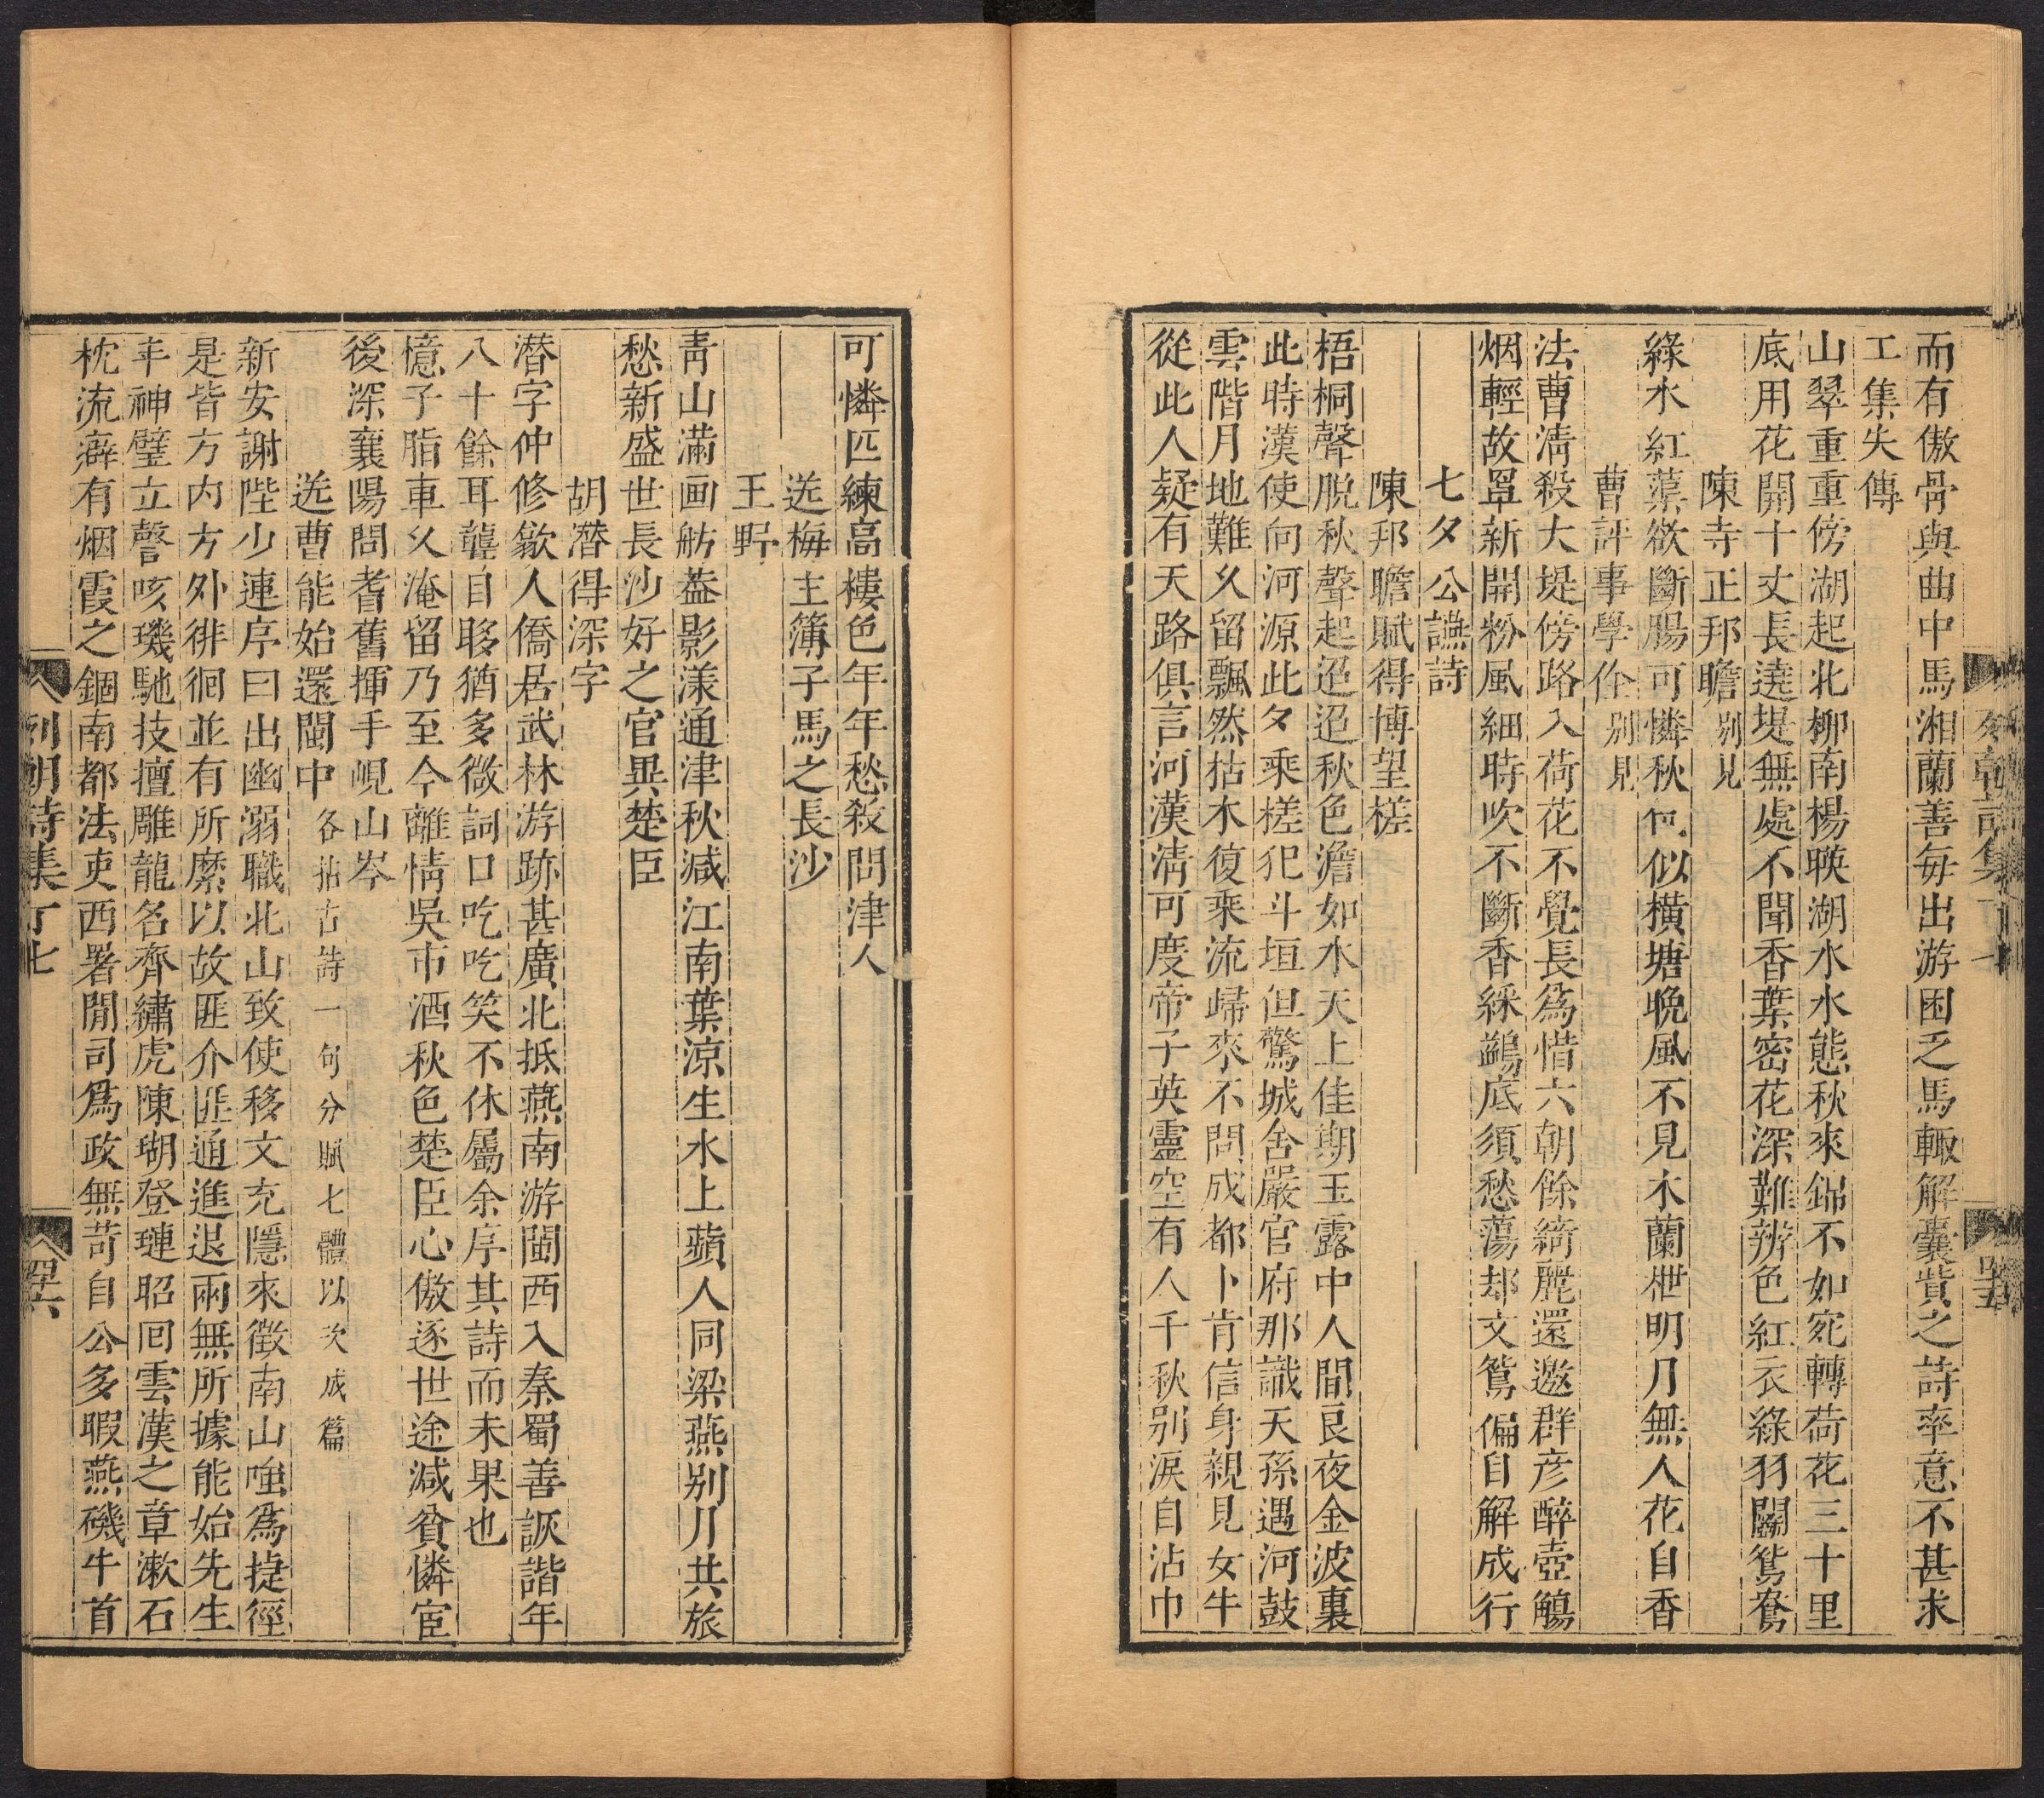 而有傲骨與曲中馬湘蘭善每出游困乏馬輙解囊貲之詩率意不甚求
工集失傳
山翠重重傍湖起北柳南楊暎湖水水態秋來錦不如宛轉荷花三十里
底用花開十丈長遶堤無處不聞香葉密花深難辨色紅衣綠羽鬭鴛鴦
陳寺正邦瞻別見
綠水紅蕖欲斷腸可憐秋何似橫塘晩風不見木蘭枻明月無人花自香
曹評事學佺別見
法曹淸殺大堤傍路入荷花不覺長爲惜六朝餘綺麗還邀群彦醉壺觴
烟輕故罩新開粉風細時吹不斷香綵鷁底須愁蕩却文鴛偏自解成行
七夕公讌詩
陳邦瞻賦得博望槎
梧桐聲脫秋聲起迢迢秋色澹如水天上佳期玉露中人間良夜金波裏
此時漢使向河源此夕乘槎犯斗垣但驚城舍嚴官府那識天孫遇河鼓
雲階月地難久留飄然枯木復乘流歸來不問成都卜肯信身親見女牛
從此人疑有天路俱言河漢淸可度帝子英靈空有人千秋别淚自沾巾
可憐匹練高樓色年年愁殺問津人
送梅主簿子馬之長沙
王野
靑山滿画舫葢影漾通津秋减江南葉涼生水上蘋人同梁燕别月共旅
愁新盛世長沙好之官異楚臣
胡潛得深字
潛字仲修歙人僑居武林游跡甚廣北抵燕南游閩西入秦蜀善詼諧年
八十餘耳聾自眵猶多微詞口吃吃笑不休屬余序其詩而未果也
憶子脂車久淹留乃至今離情吳市酒秋色楚臣心傲逐世途减貧憐宦
後深襄陽問耆舊揮手峴山岑
送曹能始還閩中各拈古詩一句分賦七體以次成篇
新安謝陛少連序曰出幽溺職北山致使移文充隱來徵南山唯爲捷徑
是皆方内方外徘徊並有所縻以故匪介匪通進退兩無所據能始先生
丰神璧立謦咳璣馳技擅雕龍名齊繡虎陳瑚登璉昭回雲漢之章漱石
枕流癖有烟霞之錮南都法吏西署閒司爲政無苛自公多暇燕磯牛首
列朝詩集 丁七 四六